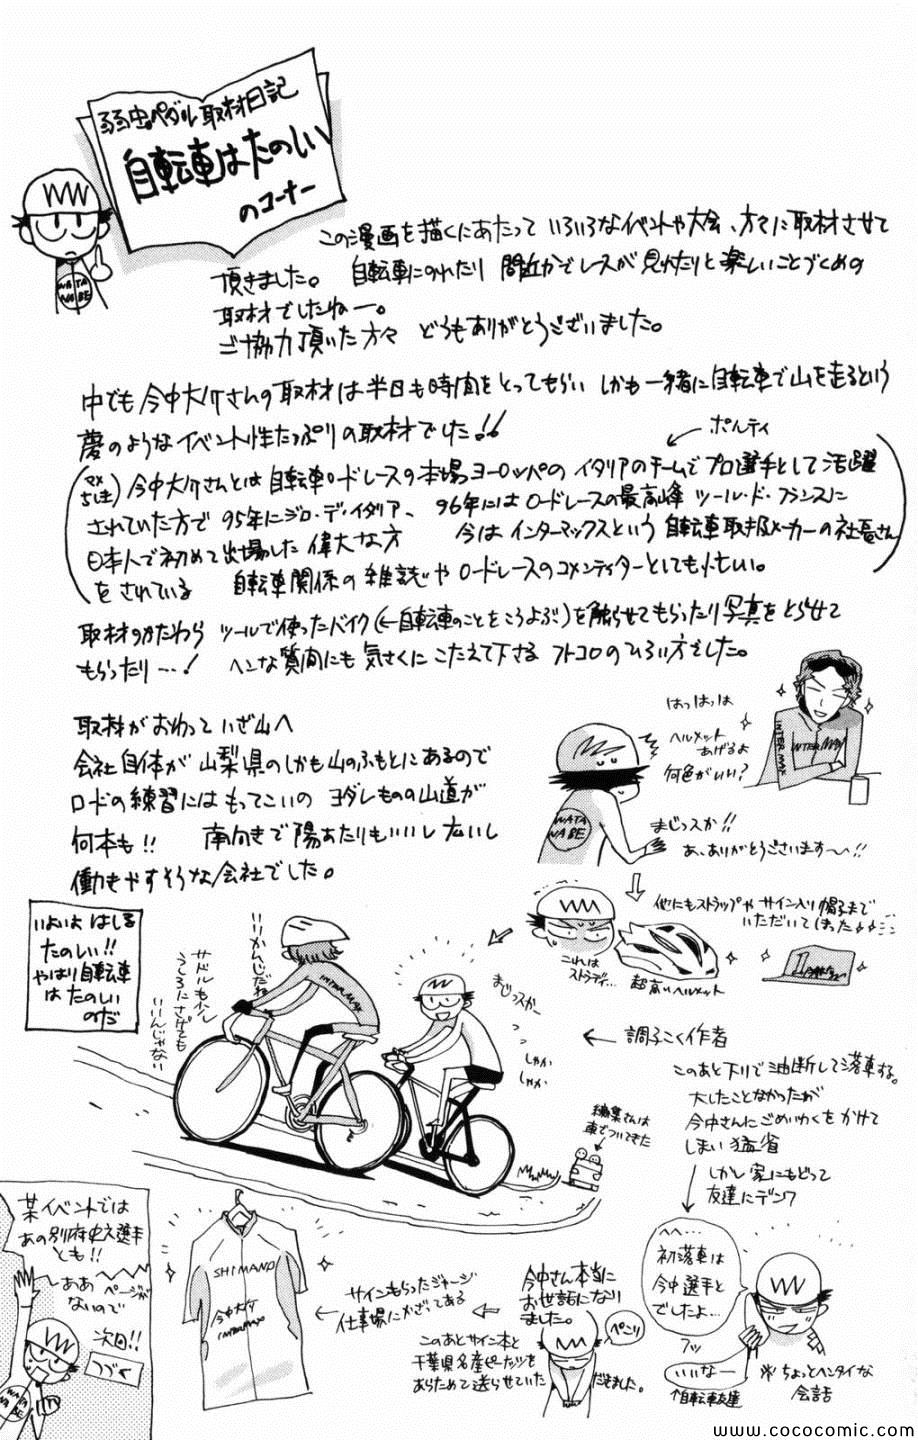 弱虫ペダル取材日記
自転車はたのしい
のコーナー
WATA
NABE
この漫画を描くにあたって いろいろなイベントや大会、方々に取材させて
頂きました。 自転車にのれたり 間近かでレースが見れたりと楽しいことづくめの
取材でしたねー。
ご協力頂いた方々 どうもありがとうございました。
中でも今中大介さんの取材は半日も時間をとってもらい しかも一緒に自転車で山を走るという
夢のようなイベント性たっぷりの取材でした!!
ポルティ
(マメちしき) 今中大介さんとは自転車ロードレースの本場ヨーロッパのイタリアのチームでプロ選手として活躍
されていた方で 95年にジロ・デ・イタリア、 96年にはロードレースの最高峰 ツール・ド・フランスに
日本人で初めて出場した偉大な方 今はインターマックスという自転車取扱メーカーの社長さん
をされている 自転車関係の雑誌やロードレースのコメンテイターとしても忙しい。
取材のかたわら ツールで使ったバイク(←自転車のことをこうよぶ)を触らせてもらったり写真をとらせて
もらったり…! ヘンな質問にも気さくにこたえて下さるフトコロのひろい方でした。
取材がおわっていざ山へ
会社自体が山梨県のしかも山のふもとにあるので
ロードの練習にはもってこいの ヨダレものの山道が
何本も!! 南向きで陽あたりもいいし広いし
働きやすそうな会社でした。
はっはっは
ヘルメット
あげるよ
何色がいい?
INTERMAX
INTERMAX
WATA
NABE
まじっスか!!
あ、ありがとうございます〜!!
他にもストラップやサイン入り帽子まで
いただいてしまった
これは
超高いヘルメット
いよいよはしる
たのしい!!
やはり自転車
はたのしい
のだ
いいかんじだね
サドルもう少し
うしろにさげても
いいんじゃない
INTERMAX
まじっスかー
しゃか
しゃか
← 調子こく作者
このあと下りで油断して落車する。
大したことなかったが
今中さんにごめいわくをかけて
しまい猛省
しかし家にもどって
友達にデンワ
編集さんは
車でついてきた
へへ…
初落車は
今中選手と
でしたよ…
フッ
いいなー
↑自転車友達
※ちょっとヘンタイな
会話
今中さん本当に
お世話になり
ました。
ペこり
このあとサイン本と
千葉県名産ピーナッツを
あらためて送らせていただきました。
サインもらったジャージ
仕事場にかざってある
SHIMANO
今中大介
INTERMAX
某イベントでは
あの別府史之選手
とも!!
ああ ページが
ないので
次回!!
つづく
WATA
NABE
www.cococomic.com